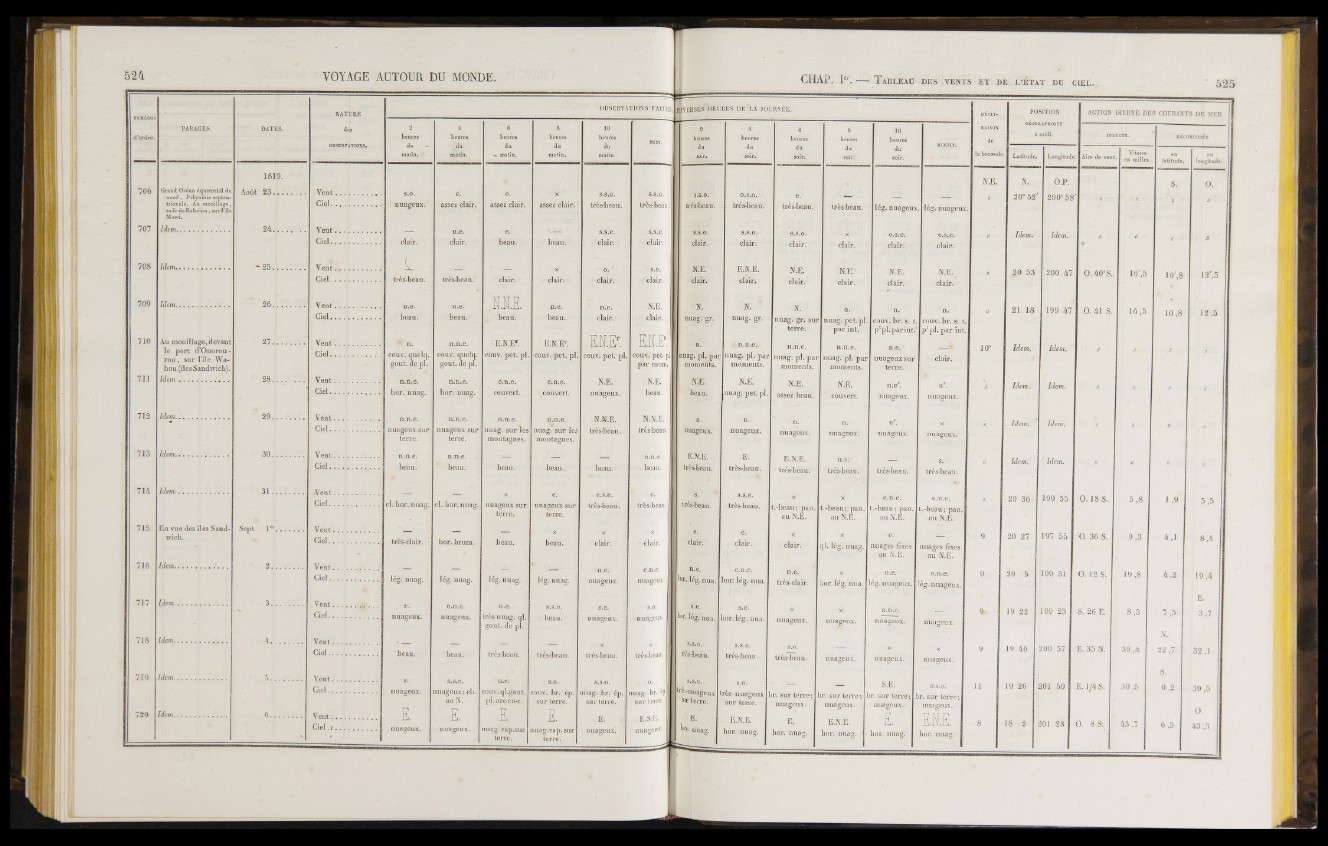 524 VOYAGE AUTOUR DU MONDE.
CHAP. Ier. — TABLEAU DES VENTS ET DE L'ÉTAT DU CIEL. 525
NUMÉROS d'ordre. PARAGES. DATES. NATURE des OBSERVATIONS.
OBSERVATIONS DIVERSES HEURES DE LA JOURNÉE.
2 heures du matin. 4 heures du matin. 6 heures du matin. 8 heures du matin. 10 heures du matin. MIDI. 2 heures du soir. 4 heures du soir. 6 heures du soir. 8 heures du soir. 10 heures du soir. MINUIT.
DÉCLINAISON de la boussole. POSITION GÉOGRAPHIQUE à midi. Latitude. Longitude.
ACTION DIURNE DES COURANTS DE MER
Aire de vent. Vitesse en milles. en latitude. en longitude.
1819.
N.E. N. O.P. S. O.
706 Grand Océan équatorial du nord, Polynésie septentrionale. Au mouillage, rade de Raheina, sur l'île Mowi. Août 23
Vent s.o. e. e. × s.s.o. s.s.o. s.s.o. o.s.o. e. — — —
Ciel nuageux. assez clair. assez clair. assez clair. très-beau. très-beau. très-beau. très-beau. très-beau. très-beau. lég. nuageux. lég. nuageux.
20° 52' 200° 58'
707 Idem 24
Vent — n.e. e. — s.s.e. s.s.o. s.s.o. s.s.o. s.s.o. × e.s.e. e.s.e.
Ciel clair. clair. beau. beau. clair. clair. clair. clair. clair. clair. clair. clair.
Idem. Idem.
708 Idem 25
Vent — — — × o. s.o. N.E. E.N.E. N.E. N.E. N.E. N.E.
Ciel très-beau. très-beau. clair. clair. clair. clair. clair. clair. clair. clair. clair. clair.
20 53 200 47 O. 40° S. 16',5 10',8 12',5
709 Idem 26
Vent n.e. n.e. N.N.E. n.e. n.e. N.E. N. N. N. n. n. n.
Ciel beau. beau. beau. beau. clair. clair. nuag. gr. nuag. gr. nuag. gr. sur terre. nuag. pet. pl. par int. couv. br. s. t. p' pl. par int. couv. br. s. t. p' pl. par int.
21 18 199 47 O. 41 S. 16 ,5 10 ,8 12 ,5
710 Au mouillage, devant le port d'Onorourou, sur l'île Wahou (îles Sandwich). 27
Vent n. n.n.e. E.N.Er. E.N.Er. E.N.Er. E.N.Er n. n.n.e. n.n.e. n.n.e. n.e. —
Ciel couv. quelq. gout. de pl. couv. quelq. gout. de pl. couv. pet. pl. couv. pet. pl. couv. pet. pl. couv. pet. pl. par mom. nuag. pl. par moments. nuag. pl. par moments. nuag. pl. par moments. nuag. pl. par moments. nuageux sur terre. clair.
10° Idem. Idem.
711 Idem 28
Vent n.n.e. n.n.e. e.n.e. e.n.e. N.E. N.E. N.E. N.E. N.E. N.E. n.er. nr.
Ciel hor. nuag. hor. nuag. couvert. couvert. nuageux. beau. beau. nuag. pet. pl. assez beau. couvert. nuageux. nuageux.
Idem. Idem.
712 Idem 29
Vent n.n.e. n.n.e. n.n.e. n.n.e. N.N.E. N.N.E. n. n. n. n. nr. ×
Ciel nuageux sur terre. nuageux sur terre. nuag. sur les montagnes. nuag. sur les montagnes. très-beau. très-beau. nuageux. nuageux. nuageux. nuageux. nuageux. nuageux.
Idem. Idem.
713 Idem 30
Vent n.n.e. n.n.e. — — — n.n.e. E.N.E. E. E.N.E. n.e. — s.
Ciel beau. beau. beau. beau. beau. beau. très-beau. très-beau. très-beau. très-beau. très-beau. très-beau.
Idem. Idem.
714 Idem 31
Vent — — × e. e.s.e. e. s. s.s.e. × × e.n.e. e.n.e.
Ciel cl. hor. nuag. cl. hor. nuag. nuageux sur terre. nuageux sur terre. très-beau. très-beau. très-beau. très-beau. t.-beau; pan. au N.E. t.-beau; pan. au N.E. t.-beau; pan. au N.E. t.-beau; pan. au N.E.
20 36 199 55 O. 18 S. 5 ,8 1 ,9 5 ,5
715 En vue des îles Sandwich. Sept. 1er
Vent — — — × × × e. e. × × e. —
Ciel très-clair. hor. brum. beau. beau. clair. clair. clair. clair. clair. ql. lég. nuag. nuages fixes au N.E. nuages fixes au N.E.
9 20 27 197 55 O. 36 S. 9 ,3 4 ,1 8 ,4
716 Idem 2
Vent — — — — n.e. e.n.e. n.e. e.n.e. n.e. × n.e. e.n.e.
Ciel lég. nuag. lég. nuag. lég. nuag. lég. nuag. nuageux. nuageux. hor. lég. nua. hor. lég. nua. très-clair. hor. lég. nua. lég. nuageux. lég. nuageux.
9 20 5 199 31 O. 12 S. 19 ,8 4 ,2 19 ,4
717 Idem 3
Vent e. e.n.e. n.e. s.s.e. s.e. s.e. s.e. s.e. × × n.n.e. —
Ciel nuageux. nuageux. très nuag. ql. gout. de pl. beau. nuageux. nuageux. hor. lég. nua. hor. lég. nua. nuageux. nuageux. nuageux. nuageux.
9 19 22 199 23 S. 26 E. 8 ,5 7 ,5 E. 3 ,7
718 Idem 4
Vent — — — — × × s.s.o. s.s.o. s.o. — × ×
Ciel beau. beau. très-beau. très-beau. très-beau. très-beau. très-beau. très-beau. très-beau. nuageux. nuageux. nuageux.
9 19 40 200 57 E. 35 N. 39 ,4 N. 22 ,7 32 ,1
719 Idem 5
Vent s. s.s.e. n.e. n.e. s.s.o. o. s.s.o. s.o. — — S.E. e.s.e.
Ciel nuageux. nuageux; éb. au N. couv. ql. gout. pl. arc-en-c. couv. br. ép. sur terre. nuag. br. ép. sur terre. nuag. br. ép. sur terre. très-nuageux sur terre. très-nuageux sur terre. br. sur terre; nuageux. br. sur terre; nuageux. br. sur terre; nuageux. br. sur terre; nuageux.
11 19 26 201 59 E. 1/4 S. 39 ,5 S. 0 ,2 39 ,5
720 Idem 6
Vent E. E. E. E. E. E.S.E. E. E.N.E. E. E.N.E. E. E.N.E.
Ciel nuageux. nuageux. nuag. rap. sur terre. nuag. rap. sur terre. nuageux. nuageux. ho. nuag. hor. nuag. hor. nuag. hor. nuag. hor. nuag. hor. nuag.
8 18 2 201 28 O. 8 S. 45 ,7 6 ,5 O. 45 ,3